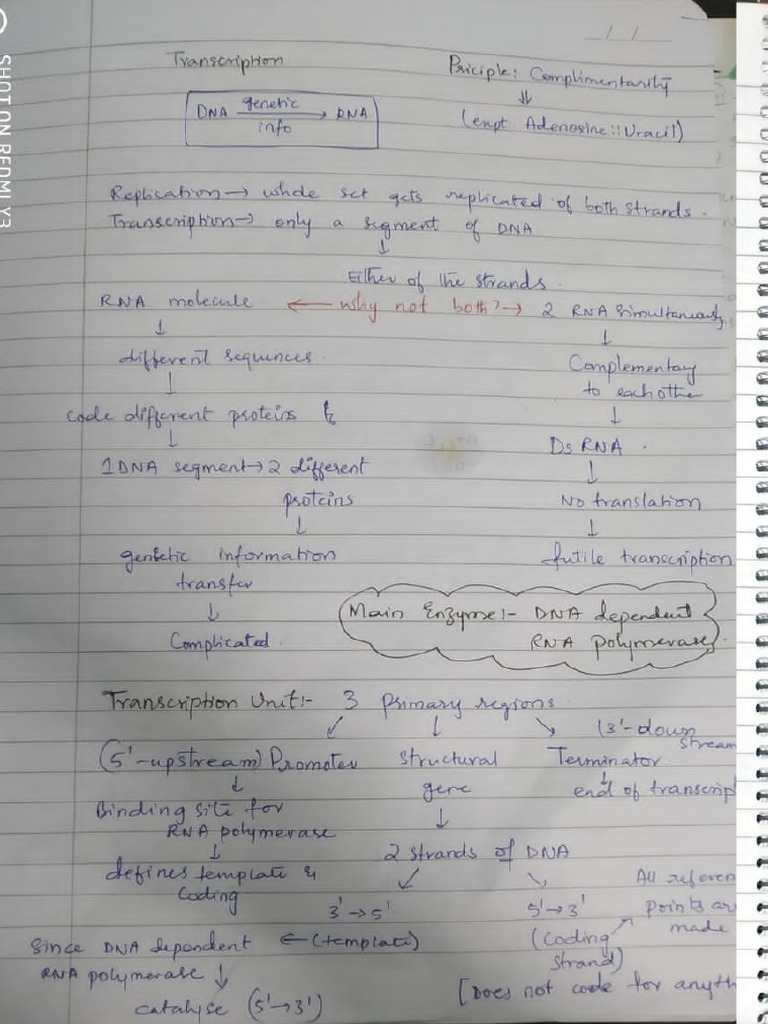 SHOT ON REDMI Y3
Transcription
Priciple: Complimentarity
↓
DNA genetic info → RNA
(exept Adenosine::Uracil)
Replication → whole set gets replicated of both strands.
Transcription → only a segment of DNA
↓
Either of the strands.
RNA molecule ← why not both? → 2 RNA simultaneously
↓ ↓
different sequences. Complementary
to eachother
↓ ↓
code different proteins Ds RNA.
↓ ↓
1 DNA segment → 2 different No translation
proteins
↓ ↓
genetic information futile transcription
transfer
↓
Complicated.
Main Enzyme:- DNA dependent
RNA polymerase.
Transcription Unit:- 3 primary regions.
(3'-down
stream
(5'-upstream) Promoter Structural Terminator
gene
↓ ↓ ↓
Binding site for end of transcrip
RNA polymerase
↓
2 strands of DNA
defines template &
coding
3' → 5' 5' → 3'
All referen
points ar
made
Since DNA dependent ← (template) (Coding
strand)
RNA polymerase ↓
[Does not code for anyth
catalyse (5' → 3')